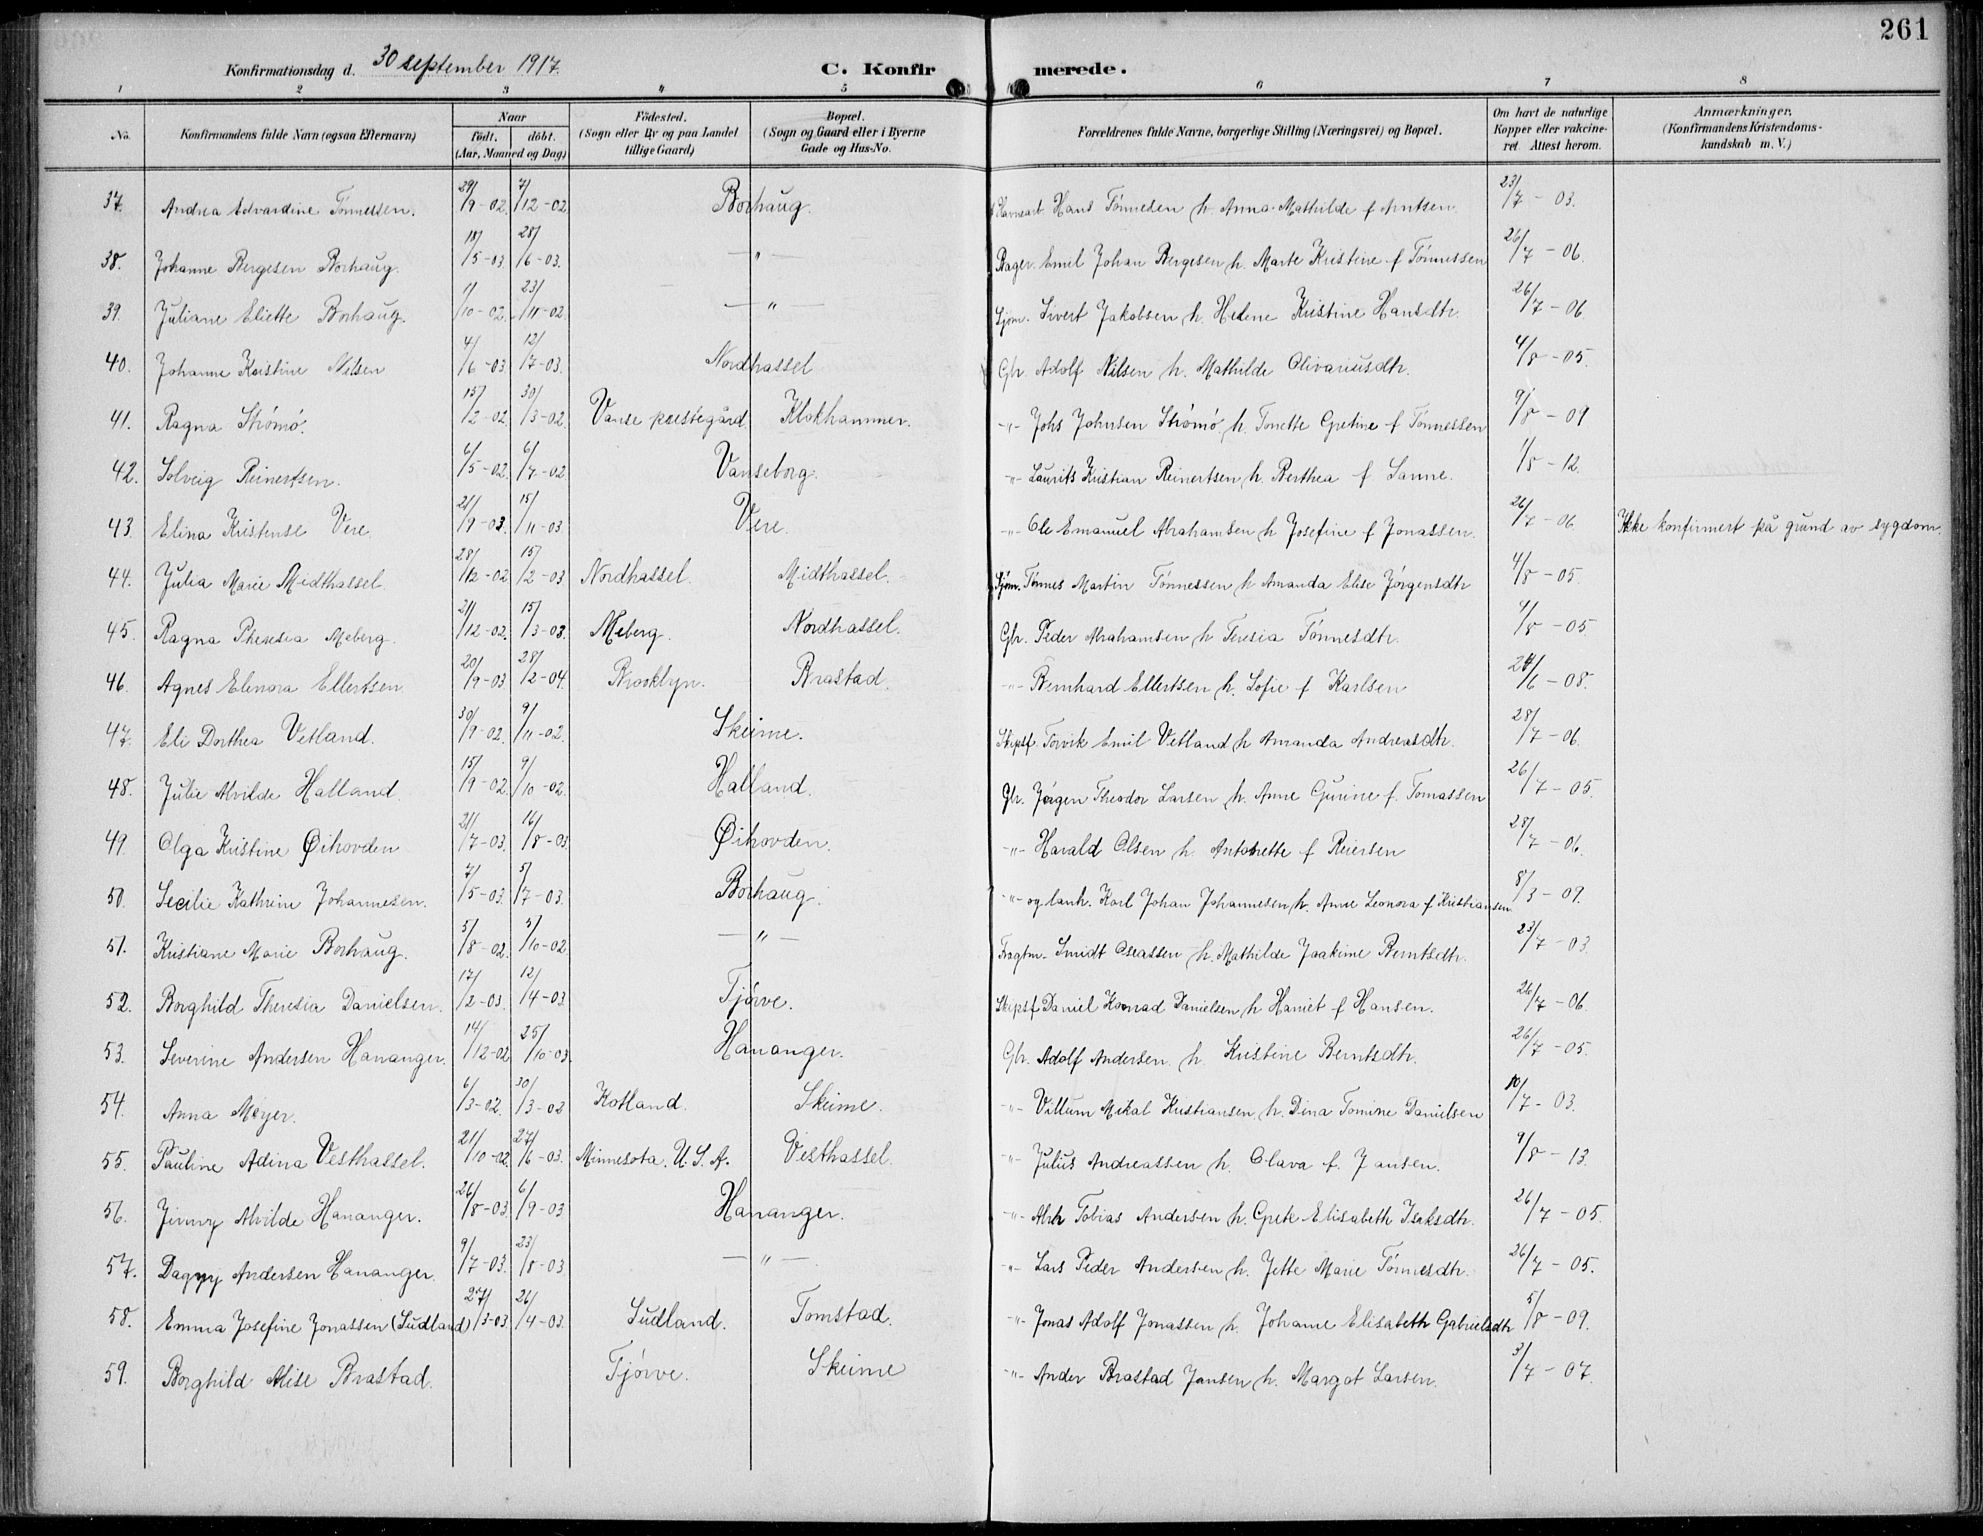 261
Konfirmationsdag d. 30 september 1917. C. Konfir merede.
1 2 3 4 5 6 7 8
No. Konfirmandens fulde Navn (ogsaa Efternavn) Naar født. døbt. (Aar, Maaned og Dag) Födested. (Sogn eller By og paa Landet tillige Gaard) Bopæl. (Sogn og Gaard eller i Byerne Gade og Hus-No. Forældrenes fulde Navne, borgerlige Stilling (Næringsvei) og Bopæl. Om havt de naturlige Kopper eller vakcineret Attest herom. Anmærkninger. (Konfirmandens Kristendomskundskab m. V.)
37. Andrea Edvardine Tønnessen. 29/9-02. 7/12-02 Borhaug. Hans Tønnesen h. Anna Mathilde f 23/7-03.
38. Johanne Bergesen Borhaug. 18/5-03 28/6-03. —"— Bager. Emil Johan Bergesen h. Marte Kristine f Tønnessen 26/7-06.
39. Juliane Eliette Borhaug. 1/10-02. 23/11-02 —"— Sjøm. Sivert Jakobsen h. Helene Kristine Hansdtr. 26/7-06
40. Johanne Kristine Nilsen 4/6-03 12/7-03. Nordhassel Gbr. Adolf Nilsen h. Mathilde Olivariusdtr. 4/8-05.
41. Ragna Strømø. 15/2-02. 30/3-02. Vanse prestegård Klokhammer. -"- Johs Johnsen Strømø h. Tonette Gretine f Tønnessen 9/8-09
42. Solveig Reinertsen. 6/5-02. 6/7-02 Vanseborg. -"- Laurits Kristian Reinertsen h. Berthea f Sanne. 1/5-12.
43 Elina Kristense Vere 21/9-03. 15/11-03 Vere. -"- Ole Emanuel Abrahamsen h Josefine f Jonassen. 26/7-06 Ikke konfirmert på grund av sygdom.
44. Julia Marie Midthassel 28/12-02 15/2-03 Nordhassel. Midthassel. Sjøm. Tønnes Martin Tønnessen h Amanda Elise Jørgensdtr 4/8-05.
45. Ragna Theresia Meberg. 21/12-02. 15/3-03. Meberg. Nordhassel. Gbr. Peder Abrahamsen h Teresia Tønnesdtr. 4/8-05
46. Agnes Elenora Ellertsen 20/9-03 28/2-04. Brooklyn. Brastad. -"- Bernhard Ellertsen h. Sofie f Karlsen 24/6-08.
47. Eli Dorthea Vetland. 30/9-02. 9/11-02. Skeime. Skipsf. Torvik Emil Vetland h Amanda Andreasdtr. 28/7-06.
48. Julie Alvilde Halland. 15/9-02. 9/10-02. Halland. Gbr. Jørgen Theodor Larsen h. Anne Gurine f. Tomassen 26/7-05.
49. Olga Kristine Øihovden 21/7-03. 16/8-03. Øihovden. -"- Harald Olsen h. Antonette f Reiersen 28/7-06.
50. Secilie Kathrine Johannesen. 7/5-03. 5/7-03. Borhaug. -"- og lank. Karl Johan Johannesen h. Anne Leonora f Kristiansen 8/3-09.
51. Kristiane Marie Borhaug. 5/8-02. 5/10-02 —"— Fragtm. Smidt Oseassen h. Mathilde Joakime Berntsdtr. 23/7-03
52. Borghild Theresia Danielsen. 17/2-03. 12/4-03 Tjørve. Skipsf Daniel Konrad Danielsen h Harriet f Hansen. 26/7-06
53. Severine Andersen Hananger. 14/12-02 25/10-03 Hananger. Gbr. Adolf Andersen h. Kristine Berntsdtr. 26/7-05.
54. Anna Meyer. 6/3-02. 30/3-02 Kotland. Skeime. -"- Villum Mikal Kristiansen h. Dina Tomine Danielsen 10/7-03.
55. Pauline Adina Vesthassel. 21/10-02. 27/6-03. Minnesota. U.S.A. Vesthassel. -"- Julius Andreassen h. Olava f. Jansen. 9/8-13.
56. Jenny Alvilde Hananger. 26/8-03 6/9-03 Hananger. -"- Abr Tobias Andersen h. Grete Elisabeth Isaksdtr. 26/7-05.
57. Dagny Andersen Hananger. 9/7-03. 23/8-03 —"— -"- Lars Peder Andersen h. Jette Marie Tønnesdtr. 26/7-05.
58. Emma Josefine Jonassen (Sudland) 27/3-03 26/4-03. Sudland. Tomstad. -"- Jonas Adolf Jonassen h. Johanne Elisabeth Gabrielsdtr 5/8-09.
59. Borghild Alise Brastad. Tjørve. Skeime -"- Ander Brastad Jansen h. Margot Larsen. 3/7-07.